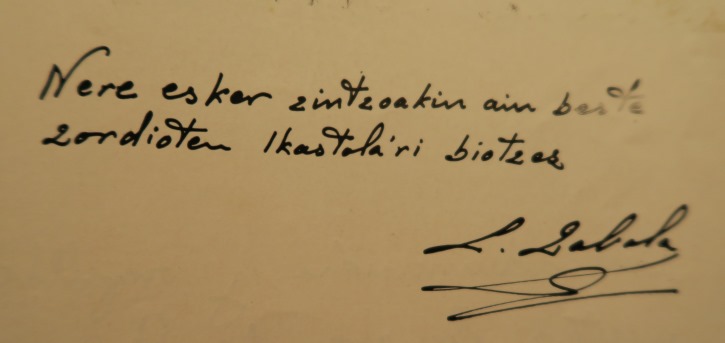 Nere esker zintzoakin ain beste
zordioten Ikastola'ri biotzez
L. Zabala